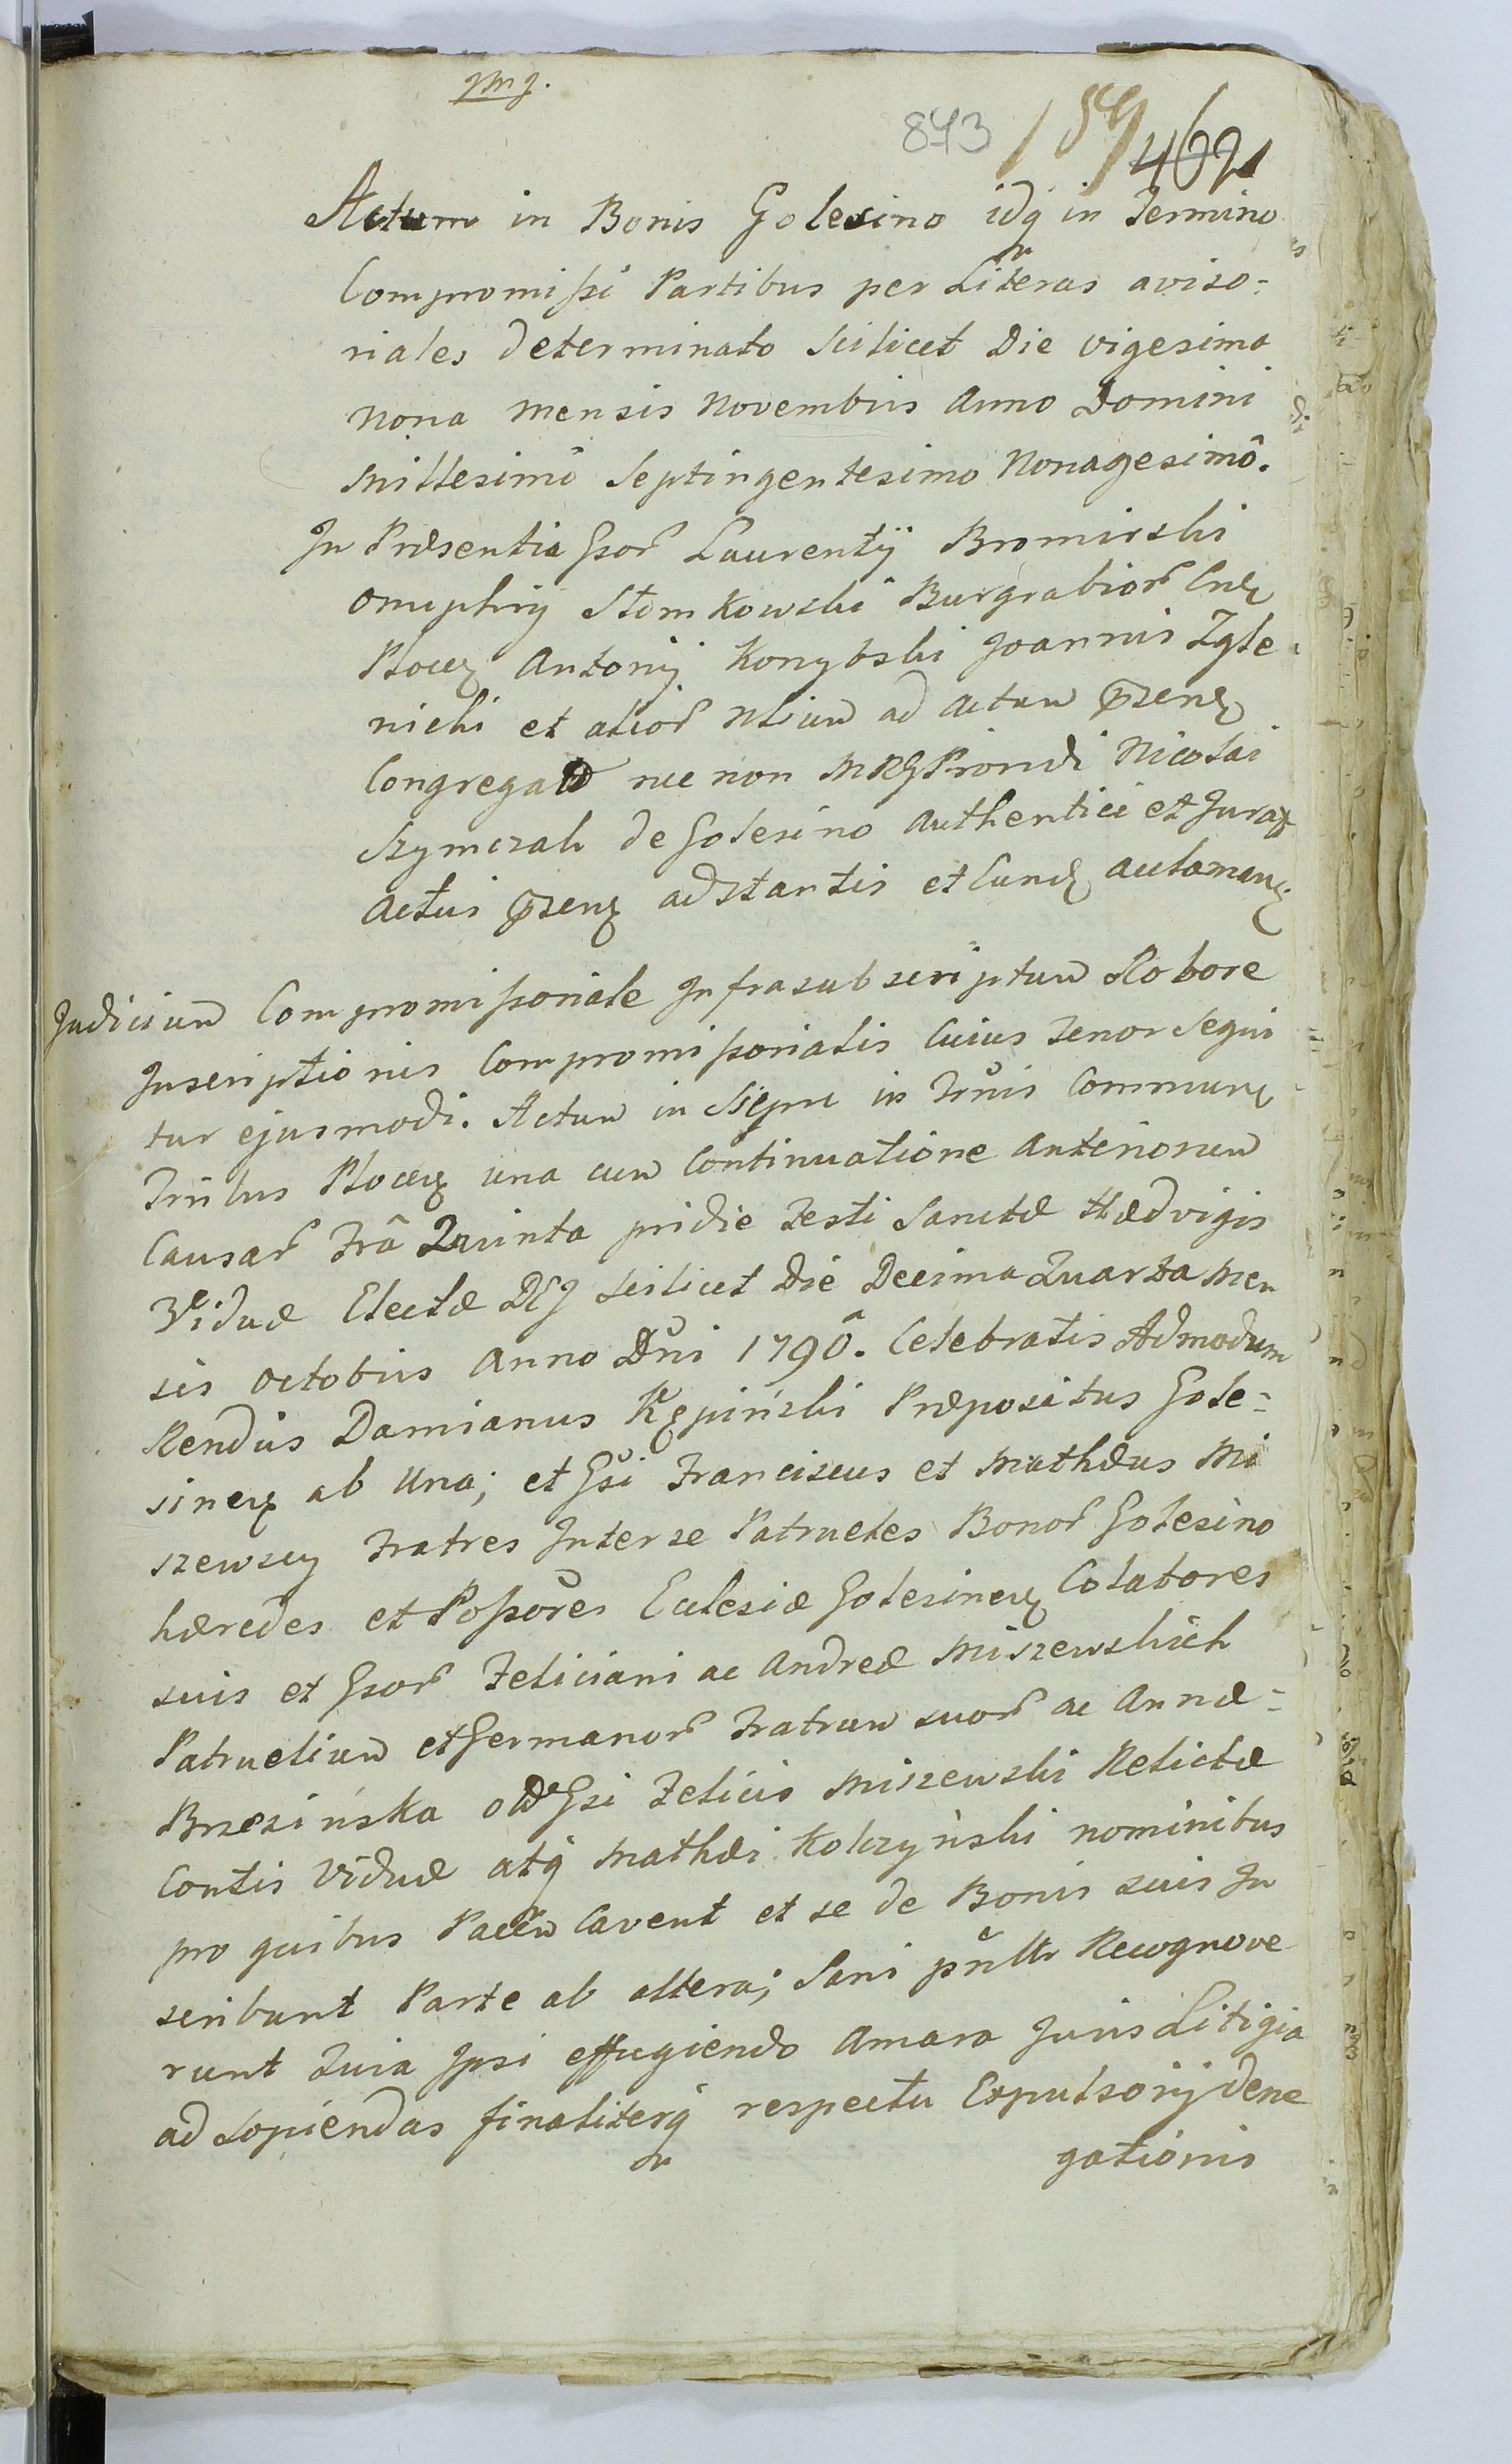 JMJ.
873 159 462
Actum in Bonis Golesino idq in Termino
Compromissi Partibus per Literas aviso-
riales determinato scilicet Die vigesima
Nona mensis Novembris Anno Domini
Millesimô Septingentesimo Nonagesimô.
In Præsentia Gsor Laurentÿ Bromirski
Onuphrij Słomkowski Burgrabior Cnlŧ
Plocen Antonij Konybski Joannis Zgle-
nicki et alior Nliũ ad actum pzenŧ
Congregato nec non MRGProndi Nicolai
Szymczak de Golesino Authentici et Jurat
Actui pzenŧ adstantis et Cunŧ aclamanŧ
Judiciũ Compromissoriale Infrasubscriptũ Robore
Inscriptionis Compromissorialis Cuius Tenor Sequi
tur ejusmodi. Actum in Sierpc in Trũis Communŧ
Trrlbus Plocen una cum Continuatione Anteriorum
Causar Frâ Quinta pridie Festi Sanctæ Hædvigis
Viduæ Electæ DEJ scilicet Die Decima Quarta Men
sis Octobris Anno Dni 1790. Celebratis Admodum
Rendus Damianus Kępiński Præpositus Gole-
sinen ab Una; et Gsi Franciscus et Mathæus Mi
szewscy Fratres Inter se Patrueles Bonor Golesino
hæredes et Possores Eclesiæ Golesinen Colatores
suis et Gsor Feliciani ac Andreæ Miszewskich
Patrueliũ et Germanor Fratrũ suor ac Annæ-
Brzezińska Gsi Felicis Miszewski Relictæ
Contis Viduæ atq Mathæi Kołczyński nominibus
pro quibus Pacem Cavent et se de Bonis suis In
scribunt Parte ab altera; Sani pnltr Recognove
runt Quia Ipsi effugiendo Amara Juris Litigia
ad sopiendas finaliterq respectu Expulsorij dene
gationis